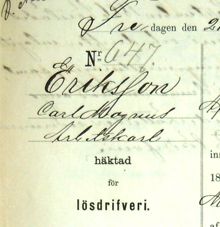 Fre dagen den 2
Nr 647
Eriksson
Carl Magnus
Arbetskarl
häktad
för
lösdrifveri.